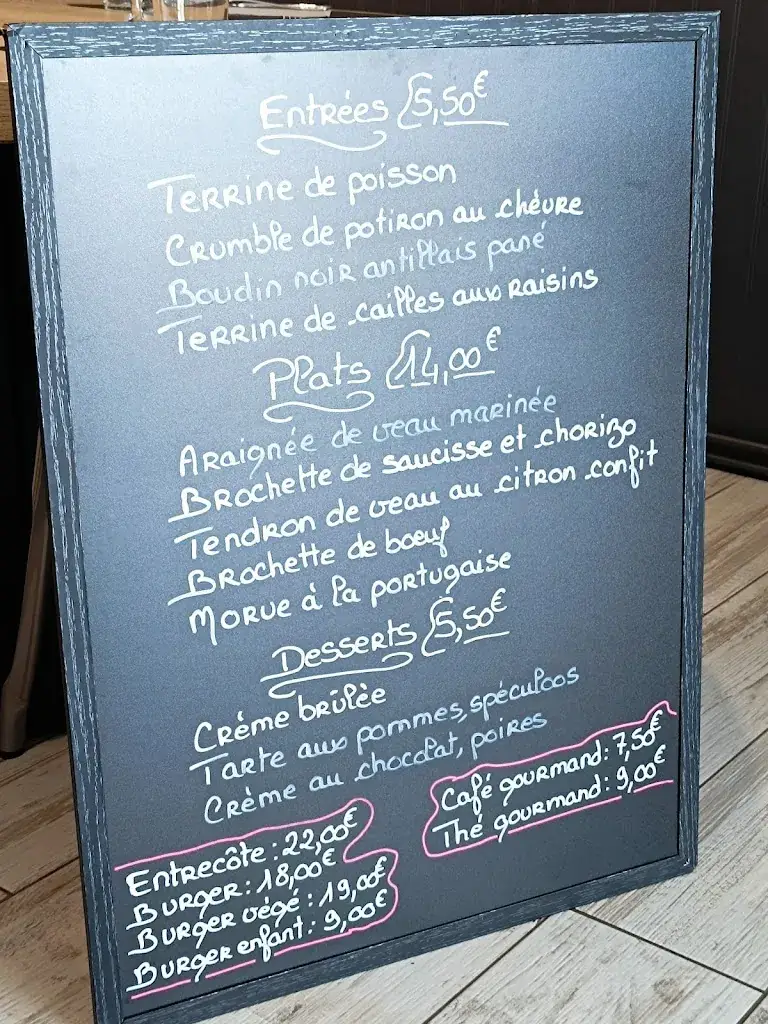 Entrées 5,50€
Terrine de poisson
Crumble de potiron au chèvre
Boudin noir antillais pané
Terrine de cailles aux raisins
Plats 14,00€
Araignée de veau marinée
Brochette de saucisse et chorizo
Tendron de veau au citron confit
Brochette de boeuf
Morue à la portugaise
Desserts 5,50€
Crème brûlèe
Tarte aux pommes, spéculoos
Crème au chocolat, poires
Café gourmand: 7,50€
Thé gourmand: 9,00€
Entrecôte: 22,00€
Burger: 18,00€
Burger végé: 19,00€
Burger enfant: 9,00€